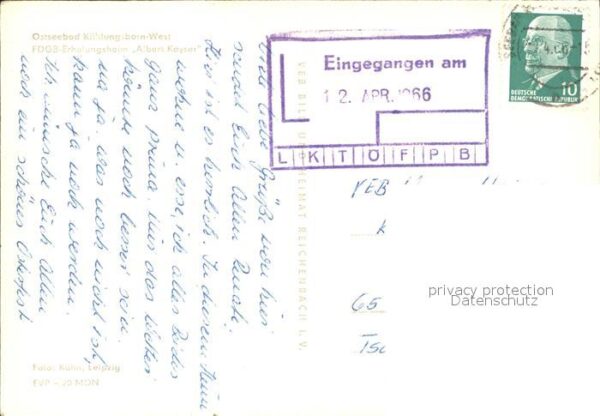 Ostseebad Kühlungsborn-West
FDGB-Erholungsheim „Albert Kayser"
Viele liebe Grüße von hier
sendet Euch Allen Renate.
Hier ist es herrlich. In diesem Heim
wohne u. esse ich, alles beides
ganz prima, nur das Wetter
könnte noch besser sein,
na ja, was noch nicht ist,
kann ja noch werden.
Ich wünsche Euch Allen
noch ein schönes Osterfest
Foto: Kühn, Leipzig
EVP – 20 MDN
VEB BILD UND HEIMAT REICHENBACH I. V.
Eingegangen am
12. APR. 1966
L K T Ö F P B
DEUTSCHE
DEMOKRATISCHE REPUBLIK
10
VEB
65
privacy protection
Datenschutz